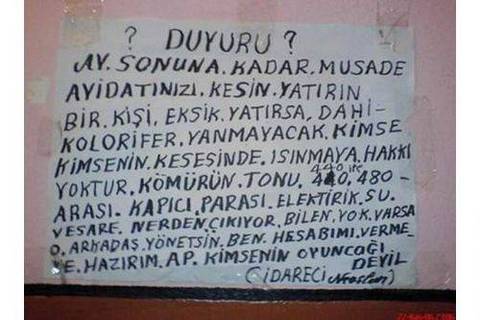 ? DUYURU ?
AY. SONUNA. KADAR. MUSADE
AYIDATINIZI. KESİN. YATIRIN
BİR. KİŞİ, EKSİK. YATIRSA, DAHİ-
KOLORİFER, YANMAYACAK. KİMSE
KİMSENİN. KESESİNDE. ISINMAYA. HAKKI
YOKTUR. KÖMÜRÜN. TONU. 440 ile 480-
ARASI. KAPICI. PARASI. ELEKTİRİK. SU.
VESARE. NERDEN ÇIKIYOR. BİLEN. YOK. VARSA
O. ARKADAŞ. YÖNETSİN. BEN. HESABIMI. VERME-
YE. HAZIRIM. AP. KİMSENİN OYUNCAĞI
DEYİL
(İDARECİ